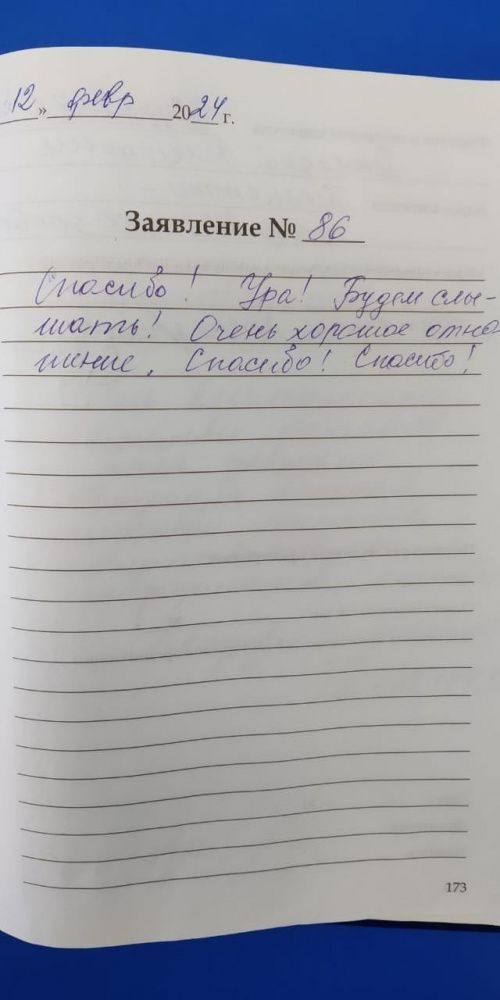 12 » февр 2024 г.
Заявление № 86
Спасибо! Ура! Будем слы-
шать! Очень хорошее отно-
шение, Спасибо! Спасибо!
173